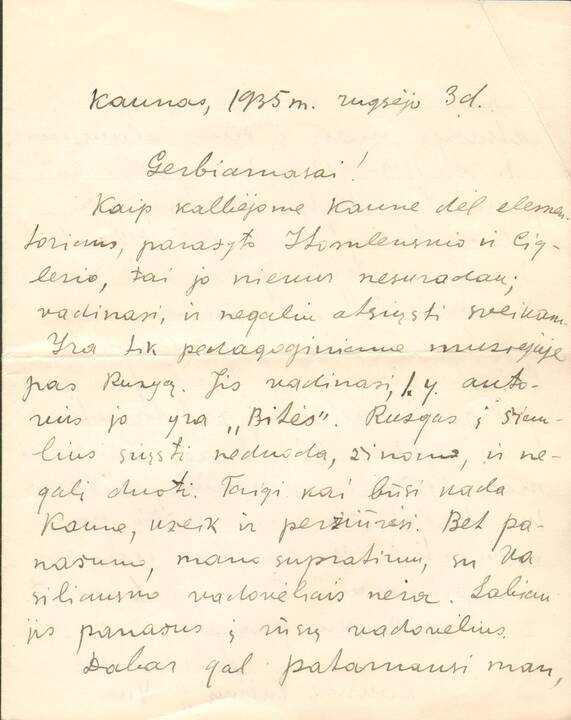 Kaunas, 1935 m. rugsėjo 3 d.
Gerbiamasai!
Kaip kalbėjome Kaune dėl elemen-
toriaus, parašyto Stomlensnio ir Cig-
lerio, tai jo niekur nesuradau;
vadinasi, ir negaliu atsiųsti sveikam.
Yra tik pedagoginiame muziejuje
pas Ruzgą. Jis vadinasi, t. y. auto-
rius jo yra „Bitės". Ruzgas į Šiau-
lius siųsti neduoda, žinoma, ir ne-
gali duoti. Taigi kai būsi kada
Kaune, užeik ir peržiūrėsi. Bet pa-
našumo, mano supratimu, su Va
siliausko vadovėliais nėra. Labiau
jis panašus į rusų vadovėlius.
Dabar gal patarnausi man,